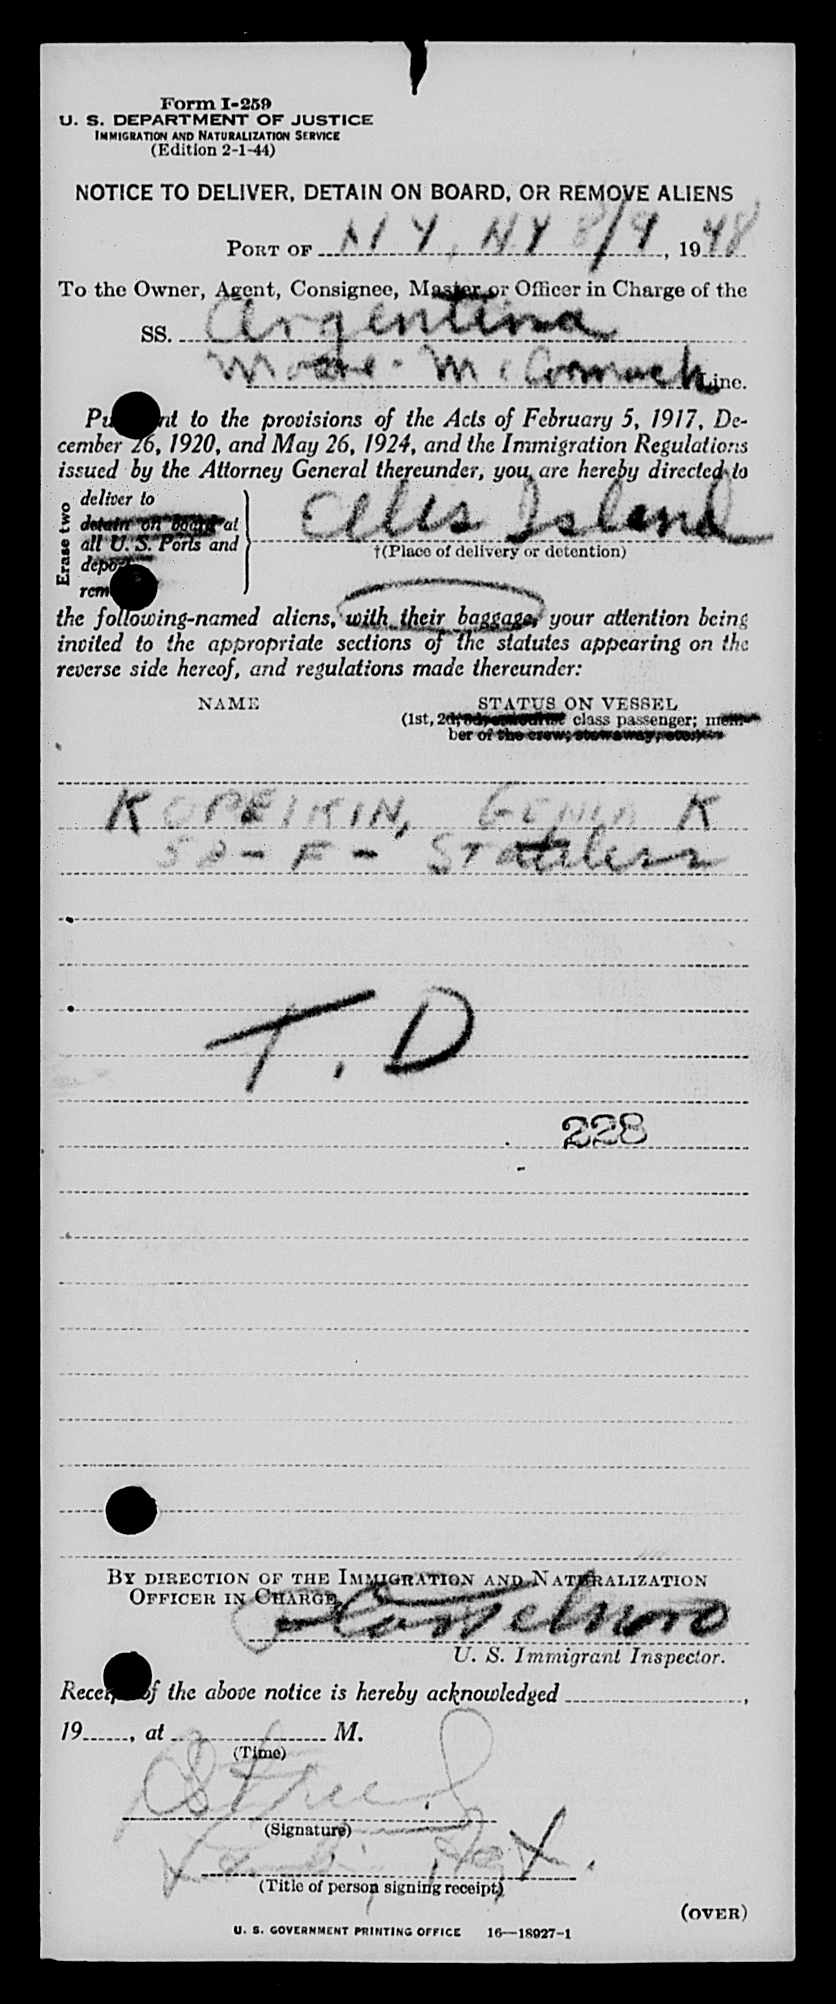 Form I-259
U. S. DEPARTMENT OF JUSTICE
IMMIGRATION AND NATURALIZATION SERVICE
(Edition 2-1-44)
NOTICE TO DELIVER, DETAIN ON BOARD, OR REMOVE ALIENS
PORT OF NY, NY 8/9, 1948
To the Owner, Agent, Consignee, Master or Officer in Charge of the
SS. Argentina
Moore-McCormack Line.
Pursuant to the provisions of the Acts of February 5, 1917, De-
cember 26, 1920, and May 26, 1924, and the Immigration Regulations
issued by the Attorney General thereunder, you are hereby directed to
Erase two
deliver to
detain on board at
all U. S. Ports and
Ellis Island
†(Place of delivery or detention)
the following-named aliens, with their baggage, your attention being
invited to the appropriate sections of the statutes appearing on the
reverse side hereof, and regulations made thereunder:
NAME STATUS ON VESSEL
(1st, 2d, class passenger; mem-
ber of the crew; stowaway, etc.)
KOPEIKIN, GENIA K
52-F- Stateless
T. D
228
BY DIRECTION OF THE IMMIGRATION AND NATURALIZATION
OFFICER IN CHARGE
U. S. Immigrant Inspector.
Receipt of the above notice is hereby acknowledged ,
19 , at M.
(Time)
(Signature)
(Title of person signing receipt)
(OVER)
U. S. GOVERNMENT PRINTING OFFICE 16—18927-1